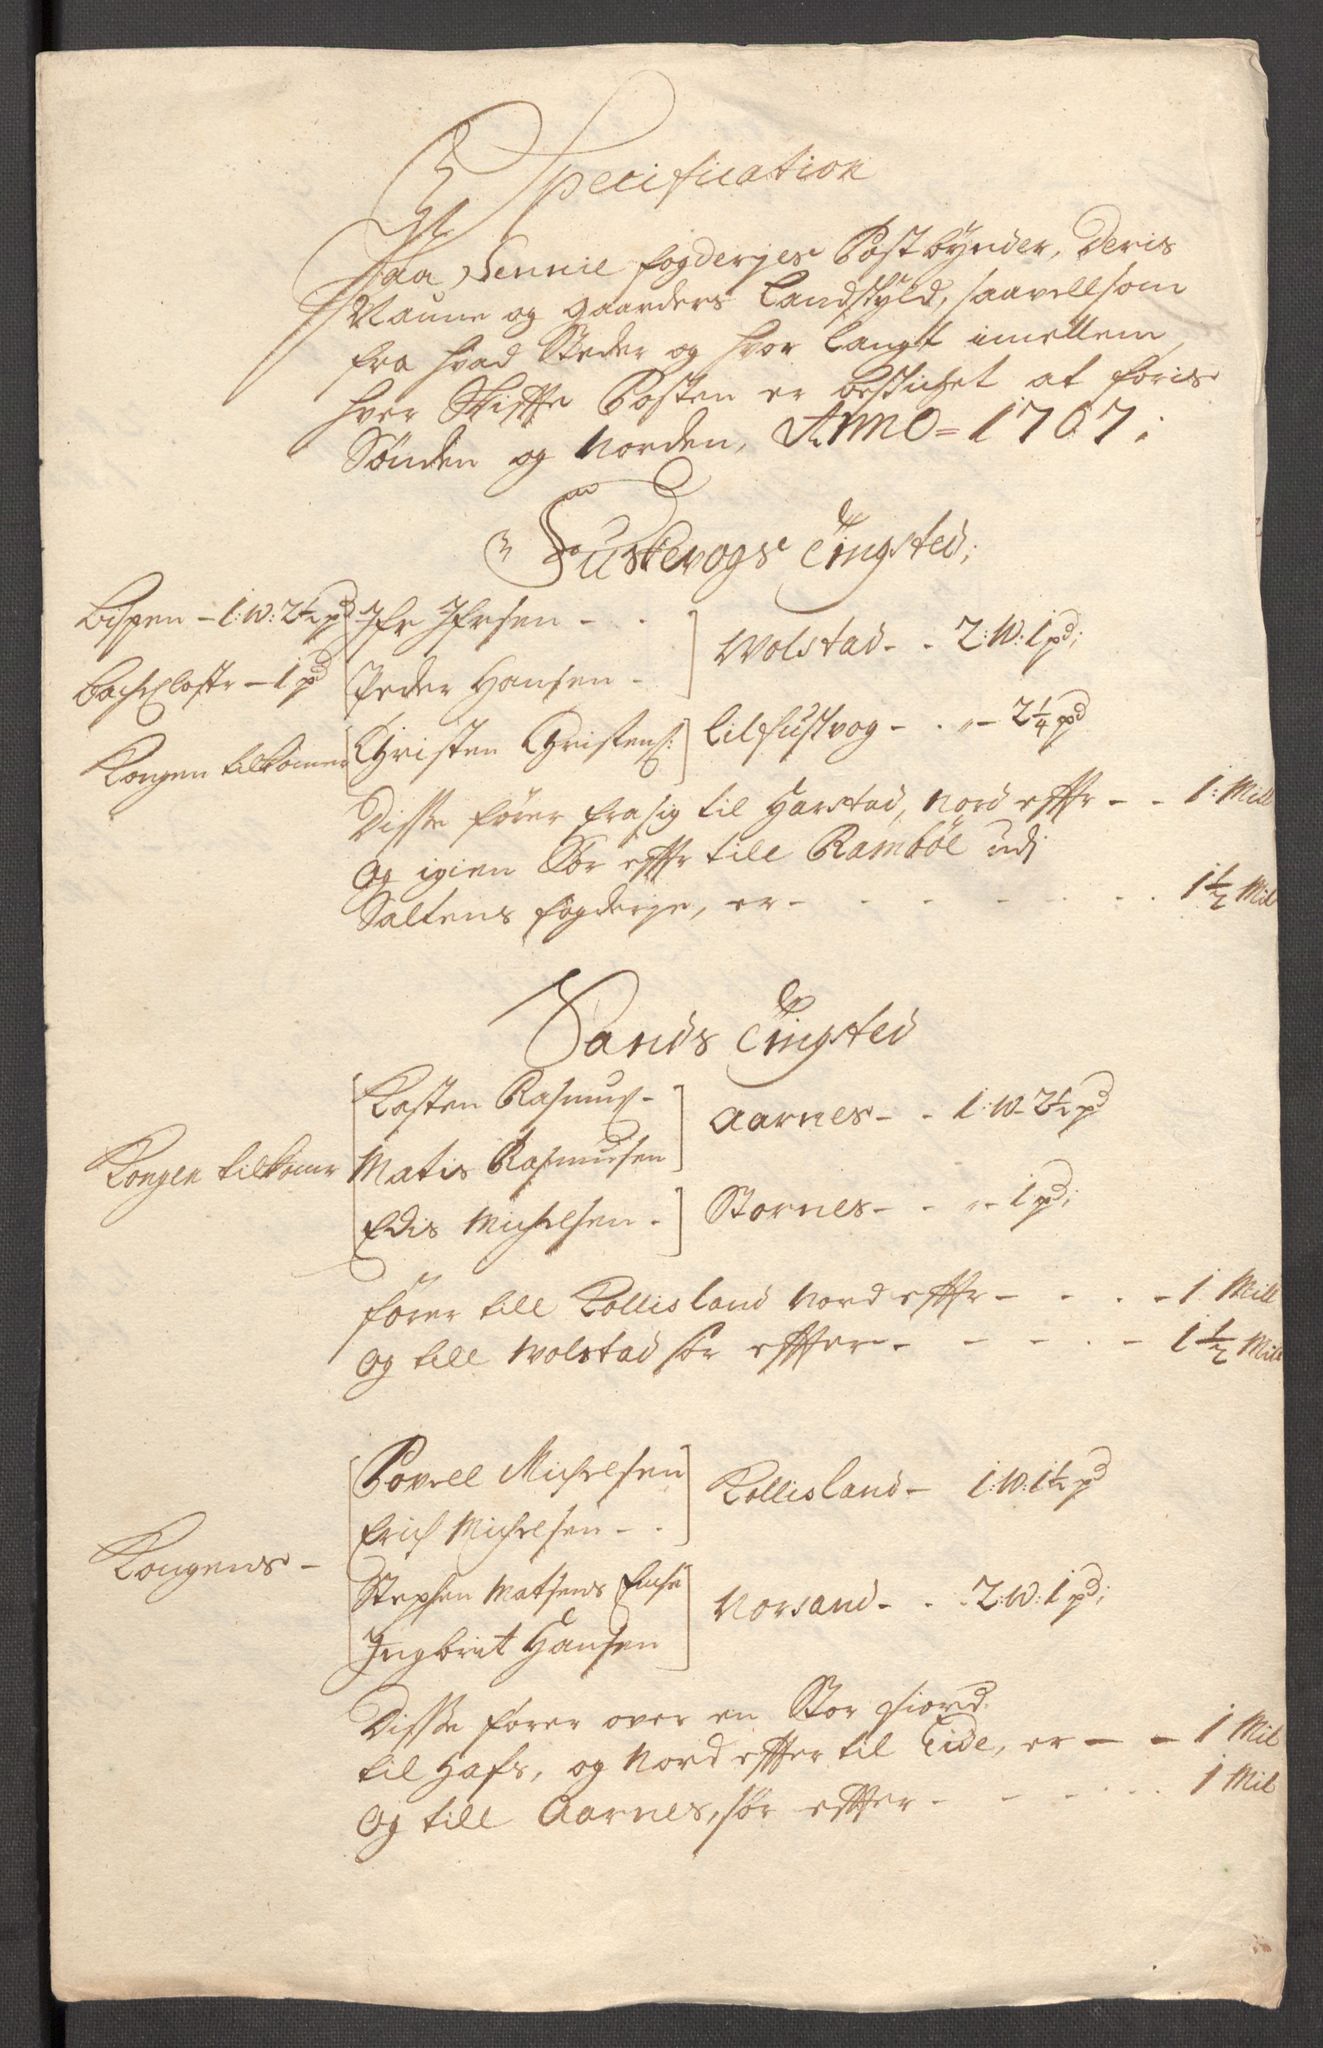 Specification
Paa Sennie fogderjes Postbynder, Deris
Naune og gaarders Landskyld, saavellsom
fra hvad Steder og hvor langt imellem
hver Skiffte Posten er bestichet at føris
Sønden og Norden, Anno = 1707;
Fuskevogs Tingsted;
Bispen - 1:w:2½ pd [Ifr Ifrsen - - ] Wolstad - - 2:w:1 pd;
BachClostr - 1 pd [Peder Hansen - ]
Kongen tilkomer [Christen Christens:] lilfustvog - - „ - 2¼ pd
Disse fører fra sig til Harstad, Nord effr - - 1: Mill
og igien Sør effr till Ramböl udj
Saltens fogderje, er - - - - - - 1½ Mil
Sands Tingsted
[Kasten Rasmus - ] Aarnes - - 1:w- 2½ pd
Kongen tilkomr [Matis Rasmusen]
[Edis Michelsen - ] Stornes - - „ - 1 pd;
fører till Kollisland Nord effr - - - - 1 Mill
og till Wolstad sør effter - - - - - 1½ Mill
[Povell Michelsen] Kollisland - 1:w:1½ pd
[Erich Michelsen - - ]
Kongens - [Stephen Matsens Enche] Norsand - - 2:w:1 pd;
[Ingbrit Hansen]
Disse fører over en Stor fiord
til Hafs, og Nord effter til Eide, er - - 1 Mil
og till Aarnes, sør effter - - - - 1 Mil